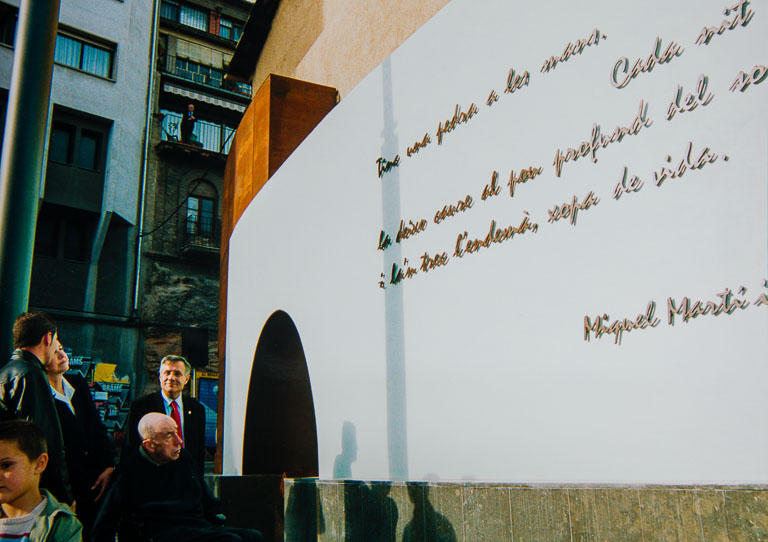 Tinc una pedra a les mans. Cada nit
la deixo caure al pou profund del so
i la'n trec l'endemà, xopa de vida.
Miquel Martí i